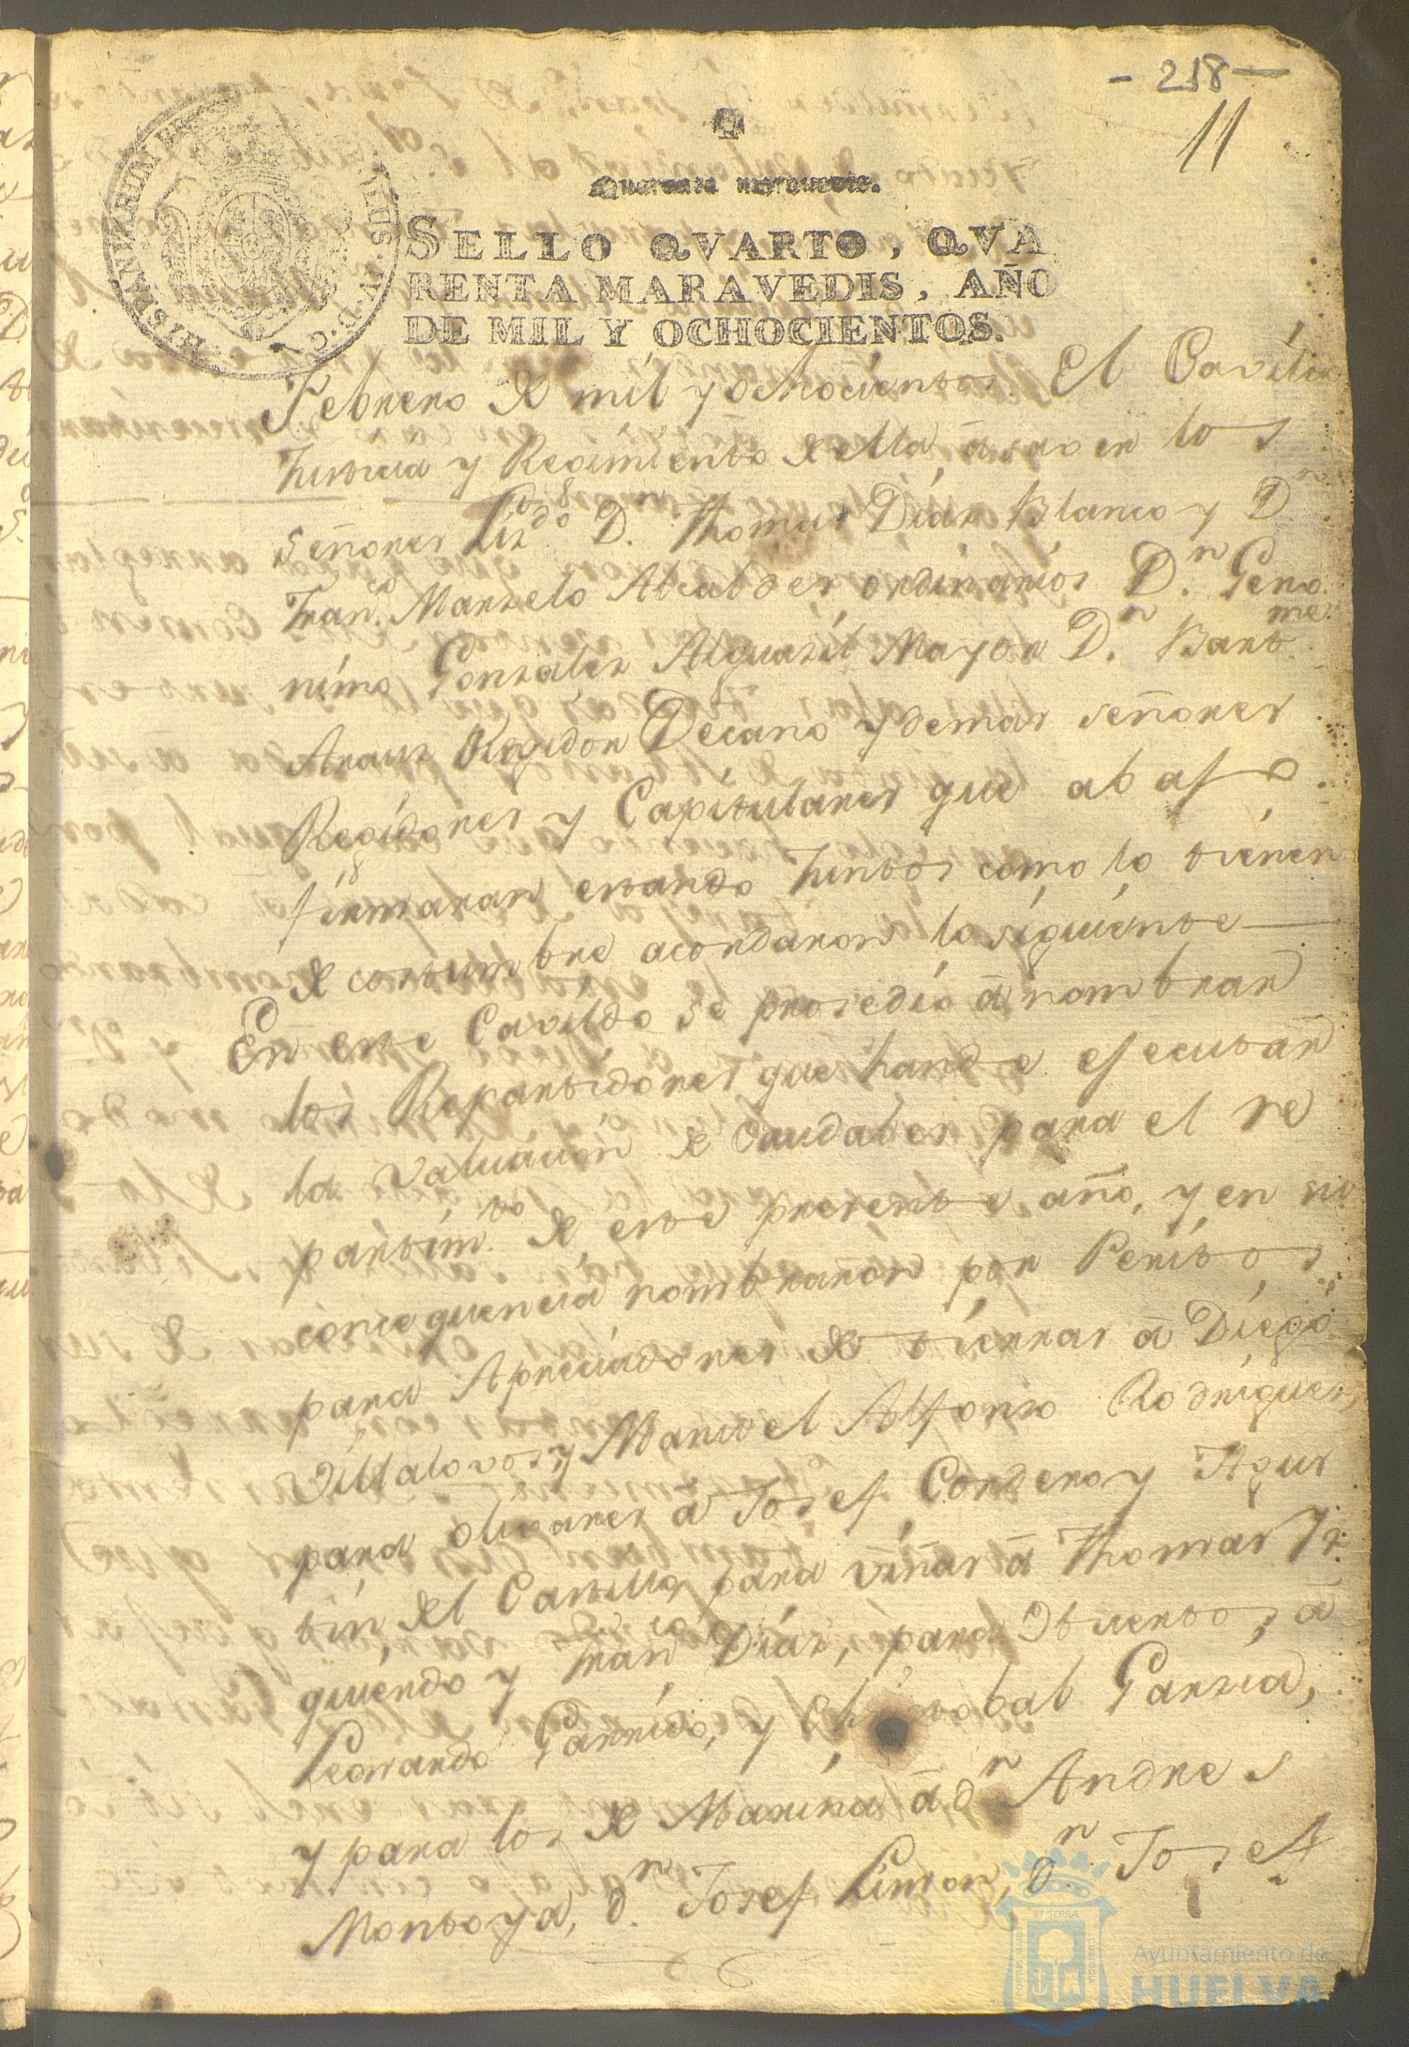 - 218 -
11
Quarenta maravedis.
HISPANIARUM REX
SELLO QVARTO, QVA
RENTA MARAVEDIS, AÑO
DE MIL Y OCHOCIENTOS.
Febrero de mil y ochocientos. El Cavildo
Justicia y Regimiento de ella, a saver los
señores Lizdo. Dn. Thomas Diaz Blanco y Dn.
Franco. Marzelo Alcaldes ordinarios Dn. Gero
nimo Gonzalez Alguazil Mayor Dn. Bartme.
Arauz Regidor Decano y demas señores
Regidores y Capitulares que abajo
firmaran estando Juntos como lo tienen
de costumbre acordaron lo siguiente
En este Cavildo se prosedio a nombrar
los Repartidores que han de ejecutar
la valuacion de Caudales para el re
partimto. de este presente año, y en su
consequencia nombraron por Peritos
para Apreciadores de tierras a Diego
Villalovos y Manuel Alfonso Rodriguez
para olivares a Josef Cordero y Agus
tin del Castillo, para viñas a Thomas Yz
quierdo y Franco Diaz, para Huertos, a
Leonardo Garrido, y Christobal Garzia,
y para los de Marina a dn Andres
Montoya, dn. Josef Limon, dn. Josef
Ayuntamiento de
HUELVA